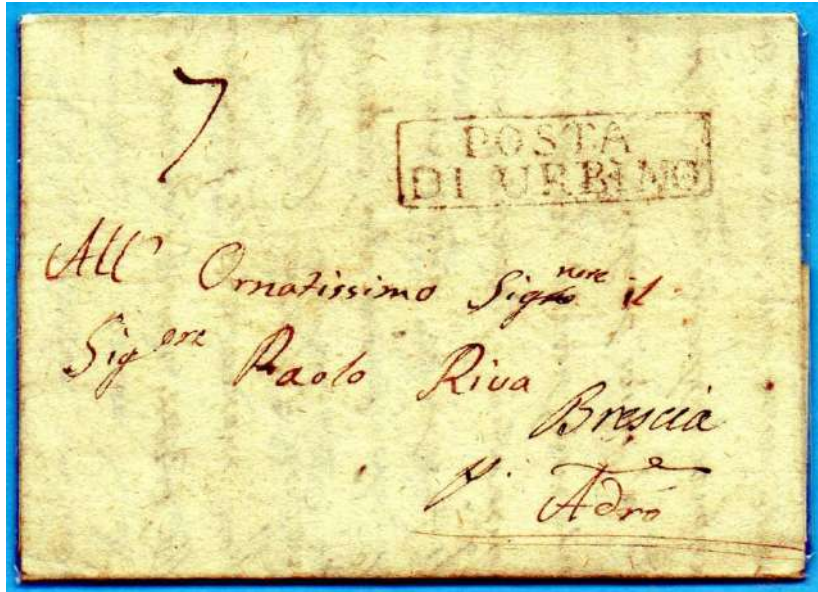 7
POSTA
DI URBINO
All' Ornatissimo Signore il
Sig.ore Paolo Riva
Brescia
p. Adro